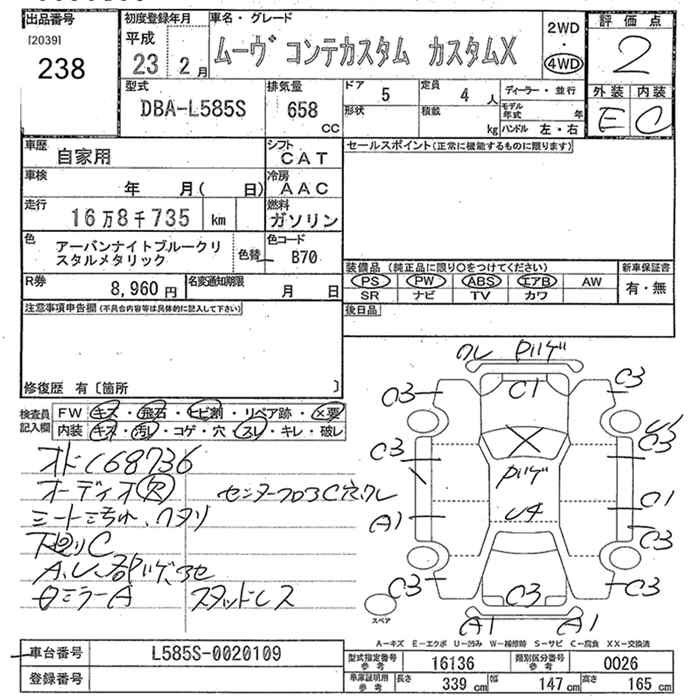 出品番号
[2039]
238
初度登録年月
平成
23 2月
車名・グレード
ムーヴ コンテカスタム カスタムX
2WD
・
4WD
評価点
2
外装 内装
E C
型式
DBA-L585S
排気量
658
CC
ドア
5
形状
定員
4 人
積載
kg
ディーラー・並行
モデル年式 年
ハンドル 左・右
車歴
自家用
シフト
CAT
車検
年 月( 日)
冷房
AAC
走行
16万8千735 km
燃料
ガソリン
色
アーバンナイトブルークリ
スタルメタリック
色替
色コード
B70
R券
8,960 円
名変通知期限
月 日
注意事項申告欄(不具合内容等は具体的に記入して下さい)
修復歴 有〔箇所 〕
セールスポイント(正常に機能するものに限ります)
装備品(純正品に限り○をつけてください)
PS PW ABS エアB AW
SR ナビ TV カワ
新車保証書
有・無
後日品
検査員
記入欄
FW キズ・飛石・ヒビ割・リペア跡・×要
内装 キズ・汚レ・コゲ・穴・スレ・キレ・破レ
オドC68736
オーディオ穴
センターフロアC穴、ワレ
シート汚れ、ヘタリ
下廻りC
Rミラー A スタッドレス
ワレ
C3
C1
C3
C3
A1
C3
×
C3
C1
C3
C3
C3
A1
A1
スペア
A-キズ E-エクボ U-凹み W-補修跡 S-サビ C-腐食 XX-交換済
車台番号
L585S-0020109
登録番号
型式指定番号
参考
16136
類別区分番号
参考
0026
車庫証明用
参考
長さ
339 cm
幅
147 cm
高さ
165 cm